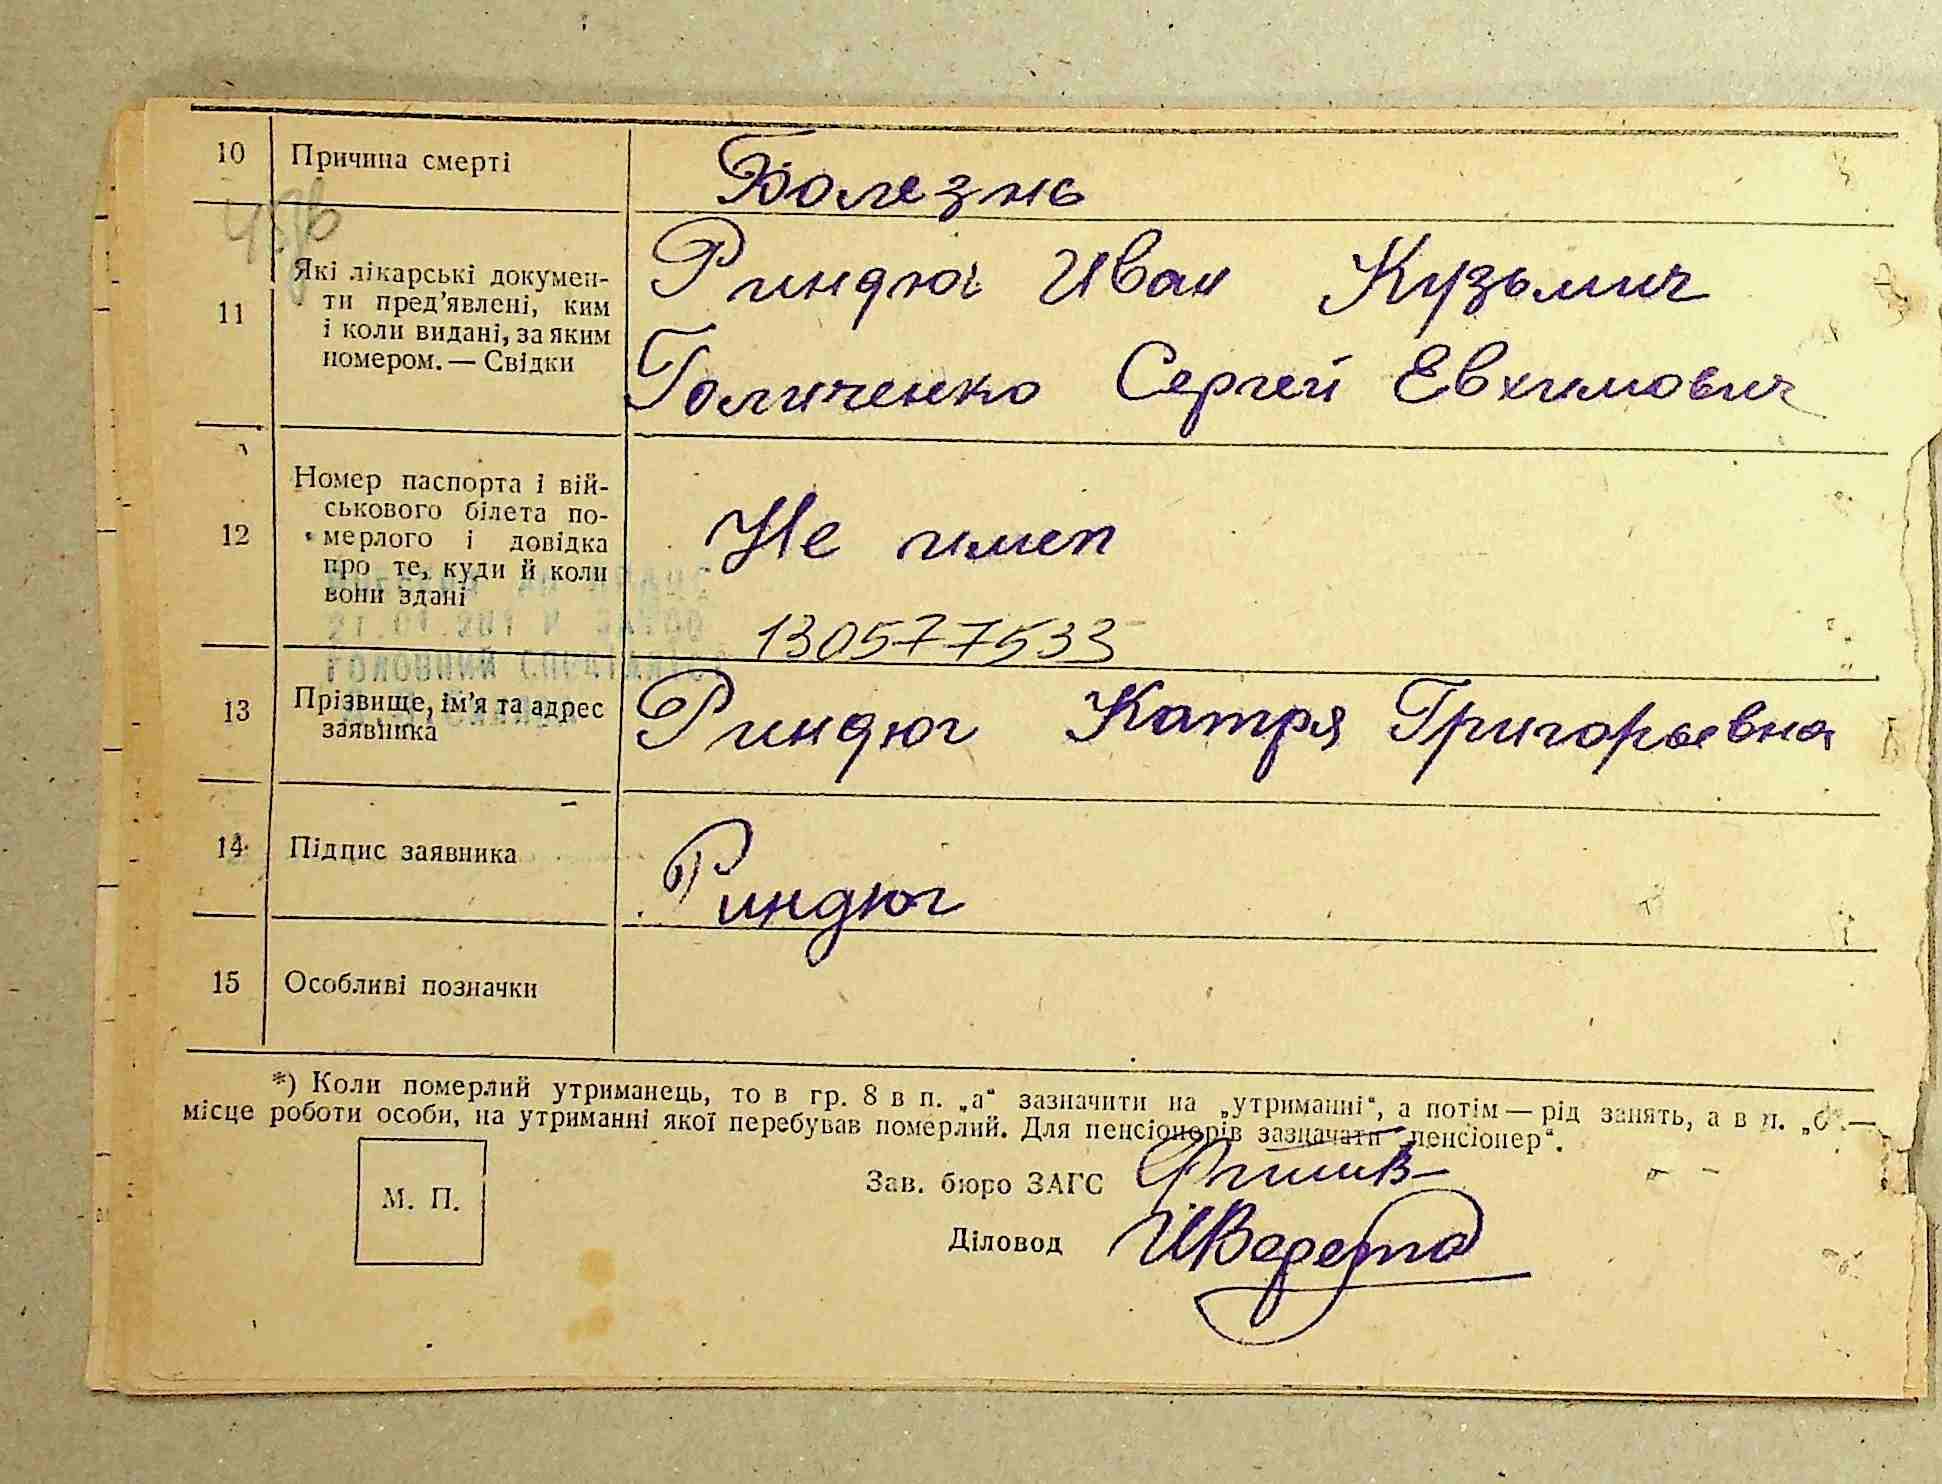 10 Причина смерті Болезнь
11 Які лікарські докумен-
ти пред'явлені, ким
і коли видані, за яким
номером. — Свідки
Риндюг Иван Кузьмич
Голиченко Сергей Евхимович
12 Номер паспорта і вій-
ськового білета по-
мерлого і довідка
про те, куди й коли
вони здані
Не имел
130577533
13 Прізвище, ім'я та адрес
заявника
Риндюг Катря Григорьевна
14 Підпис заявника Риндюг
15 Особливі позначки
*) Коли померлий утриманець, то в гр. 8 в п. „а“ зазначити на „утриманні“, а потім — рід занять, а в п. „б“ —
місце роботи особи, на утриманні якої перебував померлий. Для пенсіонерів зазначати „пенсіонер“.
М. П.
Зав. бюро ЗАГС
Діловод